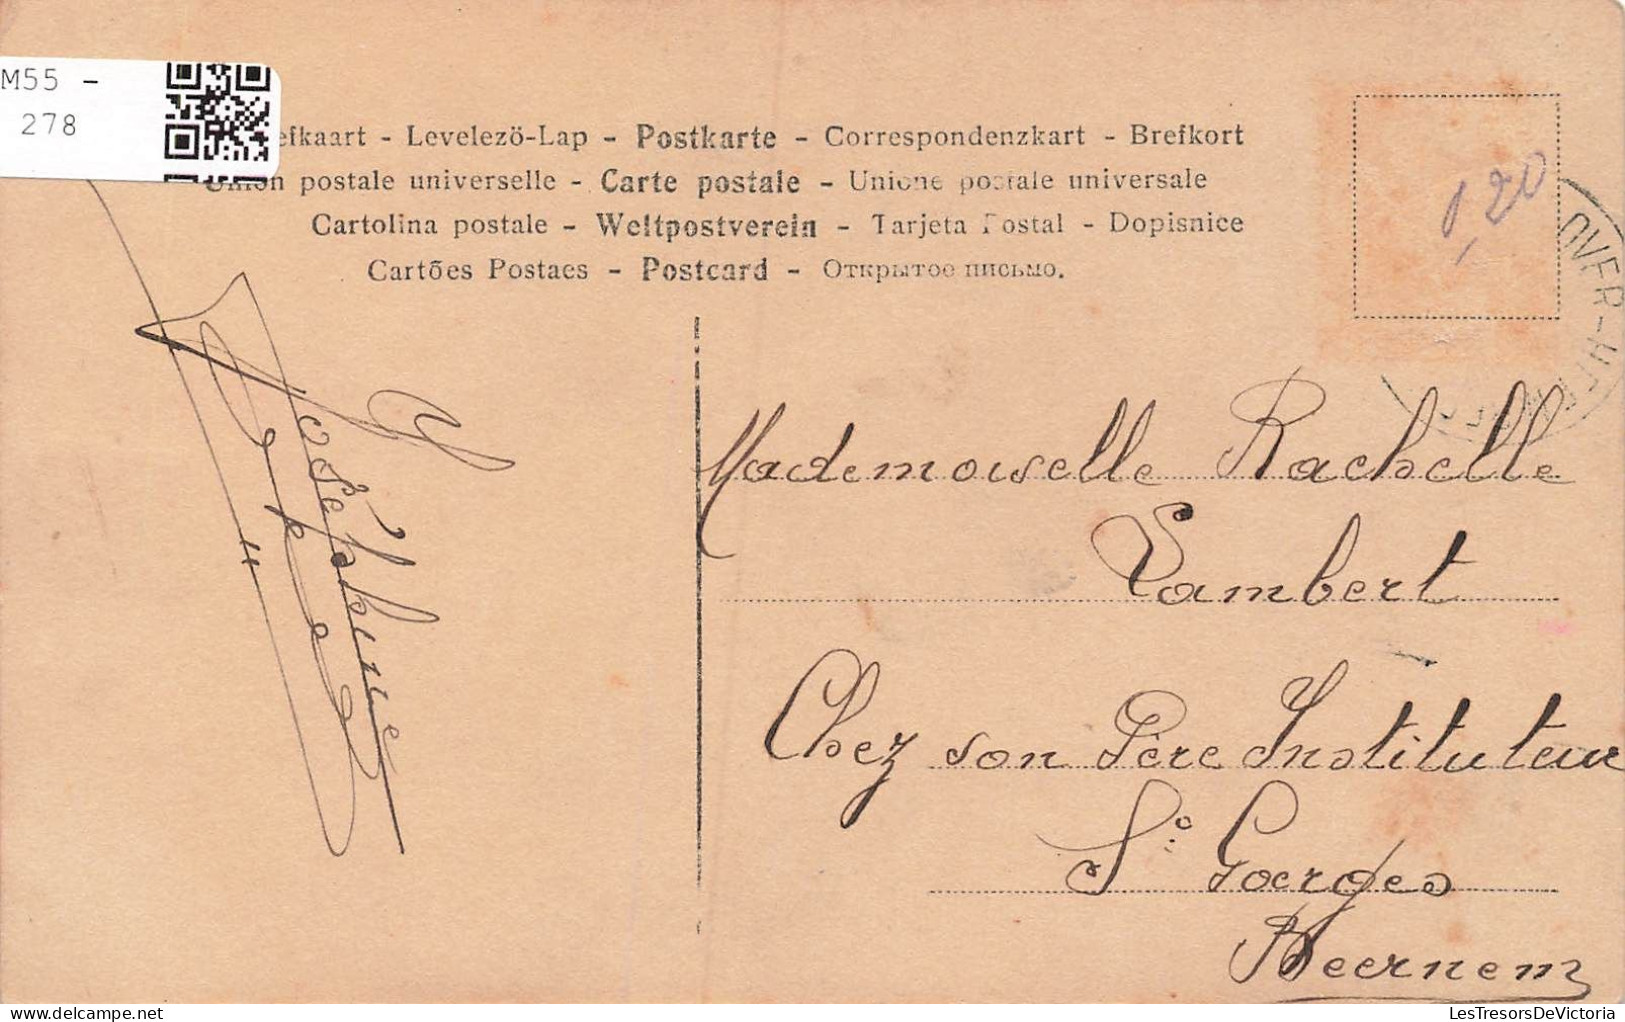 M55 -
278
efkaart - Levelezö-Lap - Postkarte - Correspondenzkart - Brefkort
Union postale universelle - Carte postale - Unione postale universale
Cartolina postale - Weltpostverein - Tarjeta Postal - Dopisnice
Cartões Postaes - Postcard - Открытое письмо.
1,20
OVER-
Joséphine
Mademoiselle Rachelle
Lambert
Chez son Père Instituteur
St Goerges
Beernem
LesTresorsDeVictoria